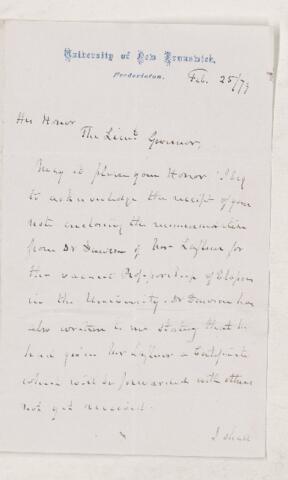 University of New Brunswick,
Fredericton, Feb. 25/79
His Honor
The Lieut. Governor,
May it please your Honor I beg
to acknowledge the receipt of your
note enclosing the recommendation
from Dr Dawson of Mr Lafleur for
the vacant Professorship of Classics
in the University. Dr Dawson has
also written to me stating that he
had given Mr Lafleur a Certificate
which will be forwarded with others
not yet received.
I shall